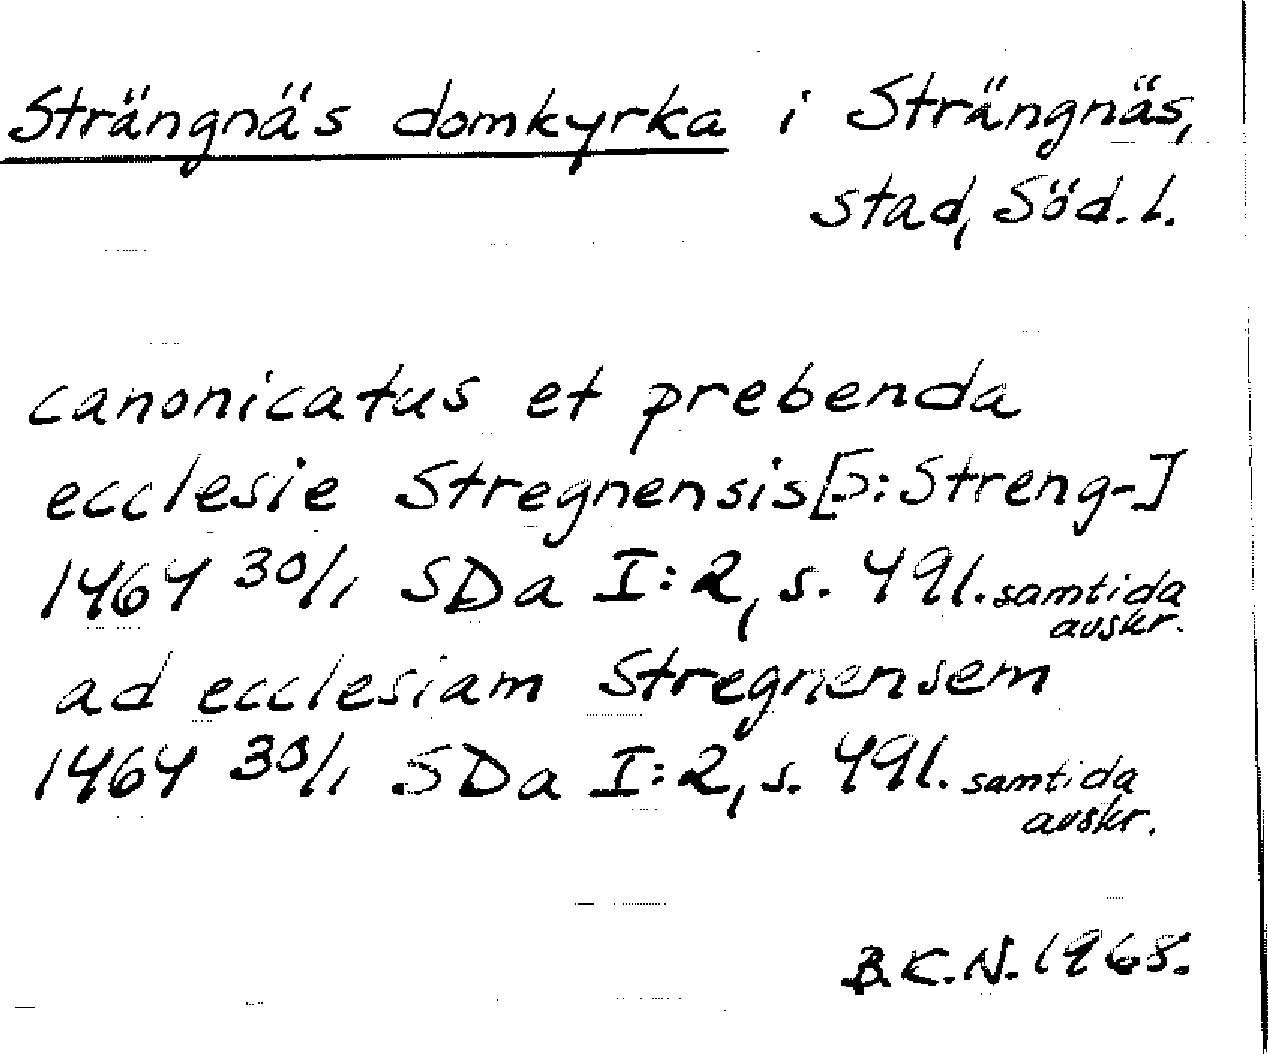 Strängnäs domkyrka i Strängnäs,
stad, Söd.l.
canonicatus et prebenda
ecclesie Stregnensis[ɔ: Streng-]
1464 30/1 SDa I:2, s. 491. samtida
avskr.
ad ecclesiam Stregnensem
1464 30/1 SDa I:2, s. 491. samtida
avskr.
B.C.N. 1968.